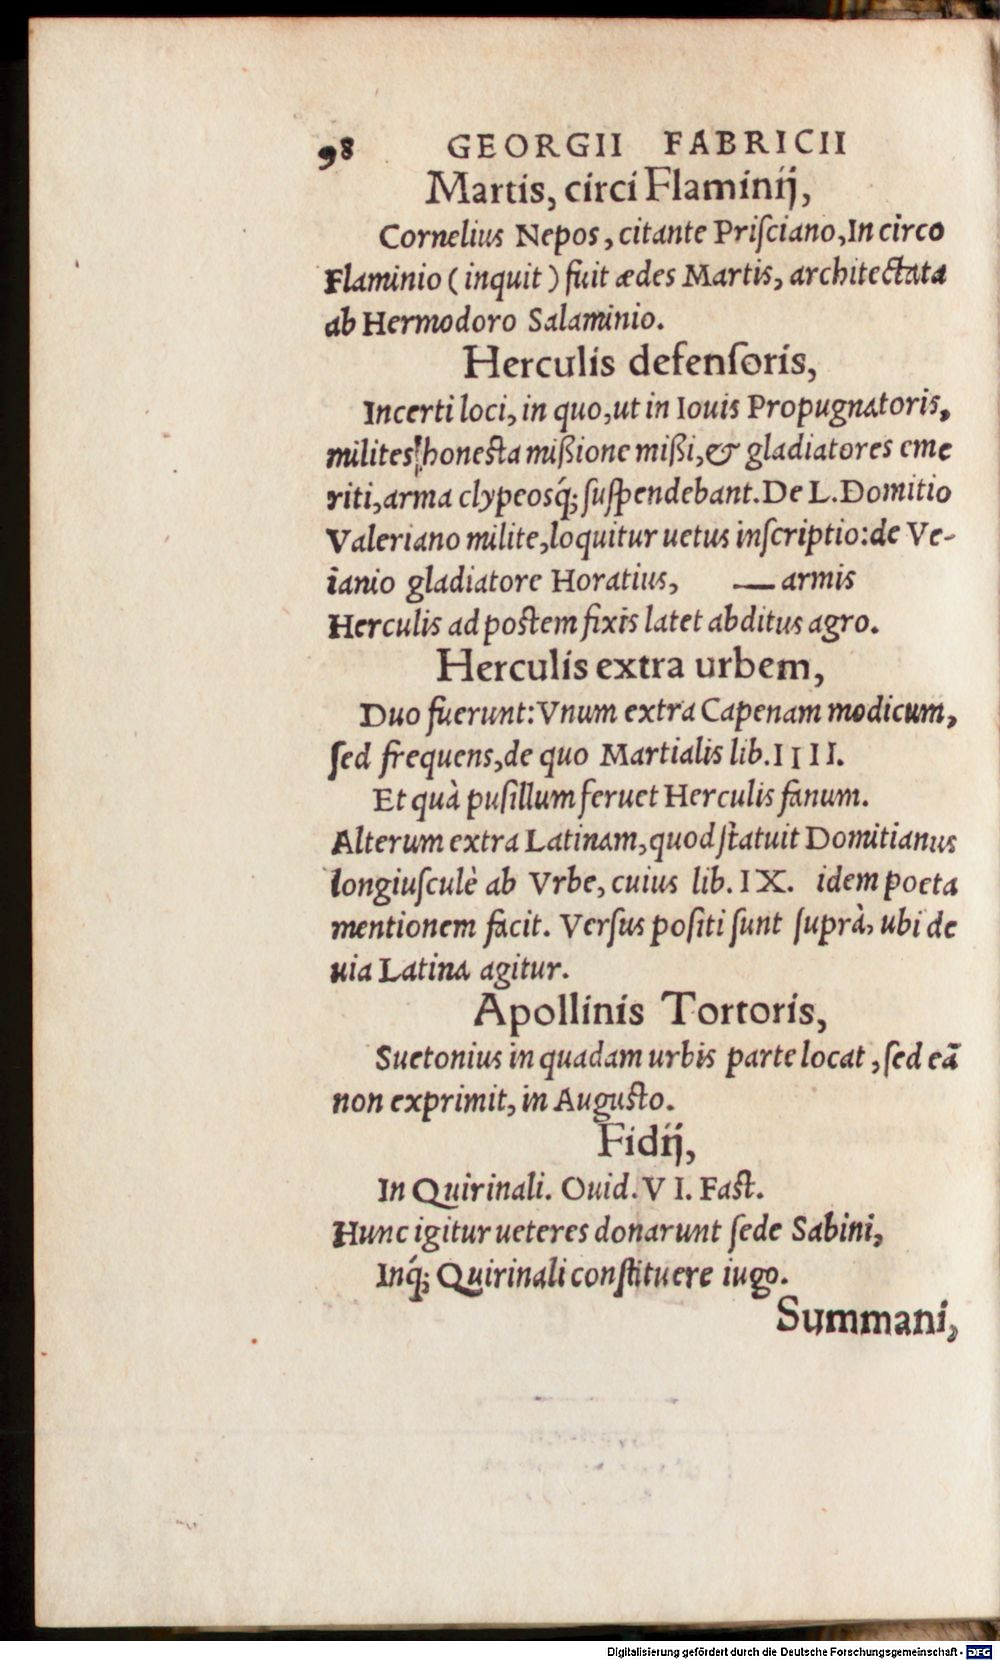 98 GEORGII FABRICII
Martis, circi Flaminij,
Cornelius Nepos, citante Priſciano, In circo
Flaminio (inquit) fuit ædes Martis, architectata
ab Hermodoro Salaminio.
Herculis defenſoris,
Incerti loci, in quo, ut in Iouis Propugnatoris,
milites honesta mißione mißi, & gladiatores eme
riti, arma clypeosq́; ſuſpendebant. De L. Domitio
Valeriano milite, loquitur uetus inſcriptio: de Ve-
ianio gladiatore Horatius, — armis
Herculis ad postem fixis latet abditus agro.
Herculis extra urbem,
Duo fuerunt: Vnum extra Capenam modicum,
ſed frequens, de quo Martialis lib. IIII.
Et quà puſillum feruet Herculis fanum.
Alterum extra Latinam, quod ſtatuit Domitianus
longiuſculè ab Vrbe, cuius lib. IX. idem poeta
mentionem facit. Verſus poſiti ſunt ſuprà, ubi de
uia Latina agitur.
Apollinis Tortoris,
Suetonius in quadam urbis parte locat, ſed eã
non exprimit, in Augusto.
Fidij,
In Quirinali. Ouid. VI. Fast.
Hunc igitur ueteres donarunt ſede Sabini,
Inq́; Quirinali conſtituere iugo.
Summani,
Digitalisierung gefördert durch die Deutsche Forschungsgemeinschaft - DFG